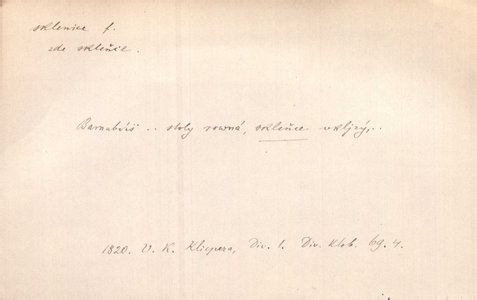 sklenice f.
zde sklenice.
Barnabáš .. stoly rovná, sklenice uklízý,..
1820. V. K. Klicpera, Div. 1. Div. klob. 69. 4.